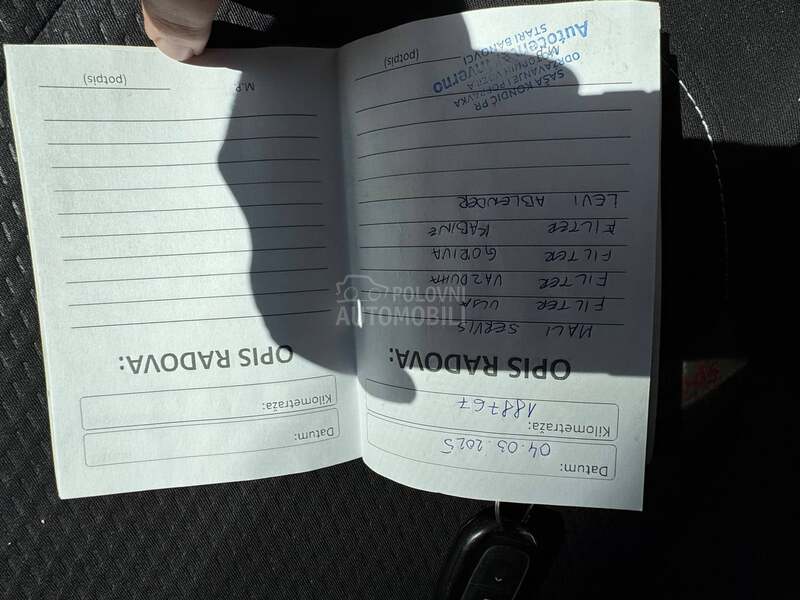 Datum: 04.03.2025
Kilometraža: 188767
OPIS RADOVA:
MALI SERVIS
FILTER ULJA
FILTER VAZDUHA
FILTER GORIVA
FILTER KABINE
LEVI ABLENDER
SAŠA KONDIĆ PR
ODRŽAVANJE I POPRAVKA
MOTORNIH VOZILA
STARI BANOVCI
(potpis)
Datum:
Kilometraža:
OPIS RADOVA:
(potpis)
POLOVNI
AUTOMOBILI